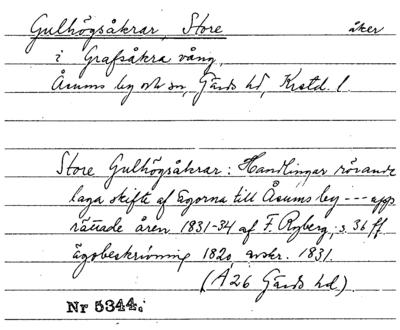 Gulhögsåkrar, Store åker
i Grafsåkra vång,
Åsums by och sn, Gärds hd, Krstd. l.
Store Gulhögsåkrar: Handlingar rörande
laga skifte af Egorna till Åsums by --- upp-
rättade åren 1831-34 af F. Ryberg, s. 36 ff
Ägobeskrivning 1820, avskr. 1831.
(Å 26 Gärds hd).
Nr 5344.